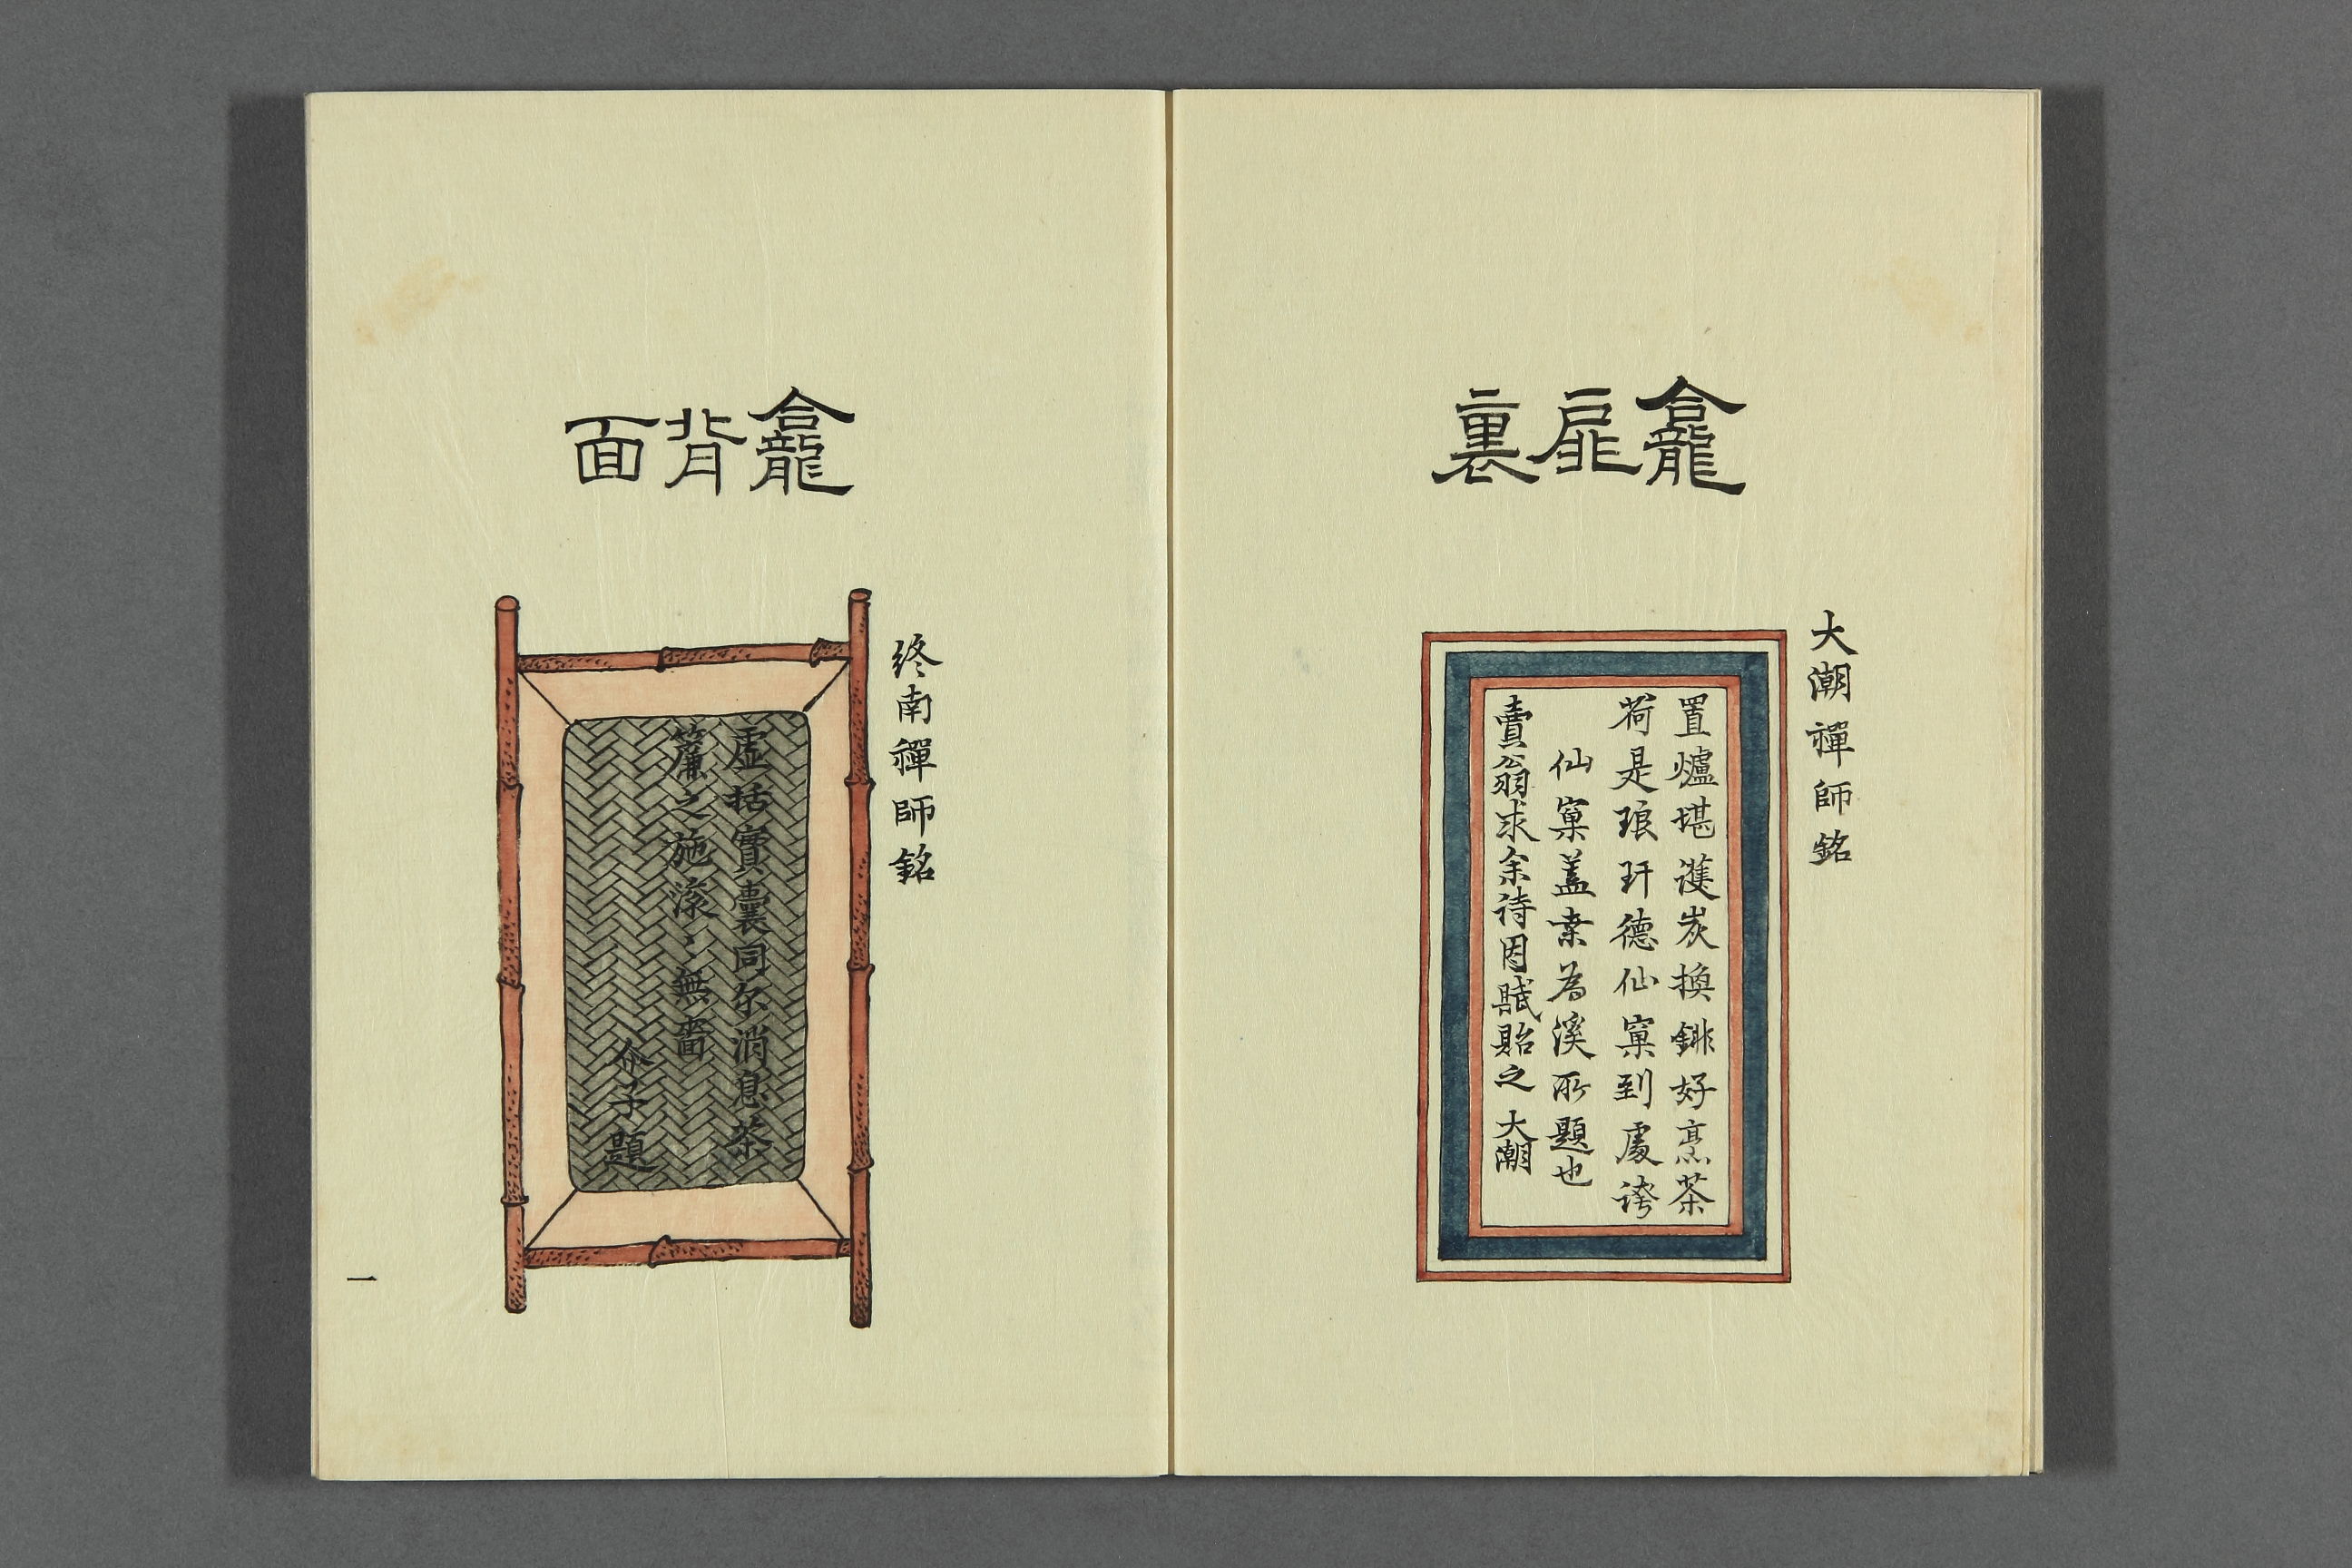 龕扉裏
大潮禪師銘
置爐堪護炭換銚好烹茶
荷是琅玕德仙窠到處誇
仙窠蓋幸為溪所題也
賣翁求余詩因賦貽之 大潮
龕背面
終南禪師銘
虛括實囊同尓消息茶
簾之施滾〻無嗇
介子題
一